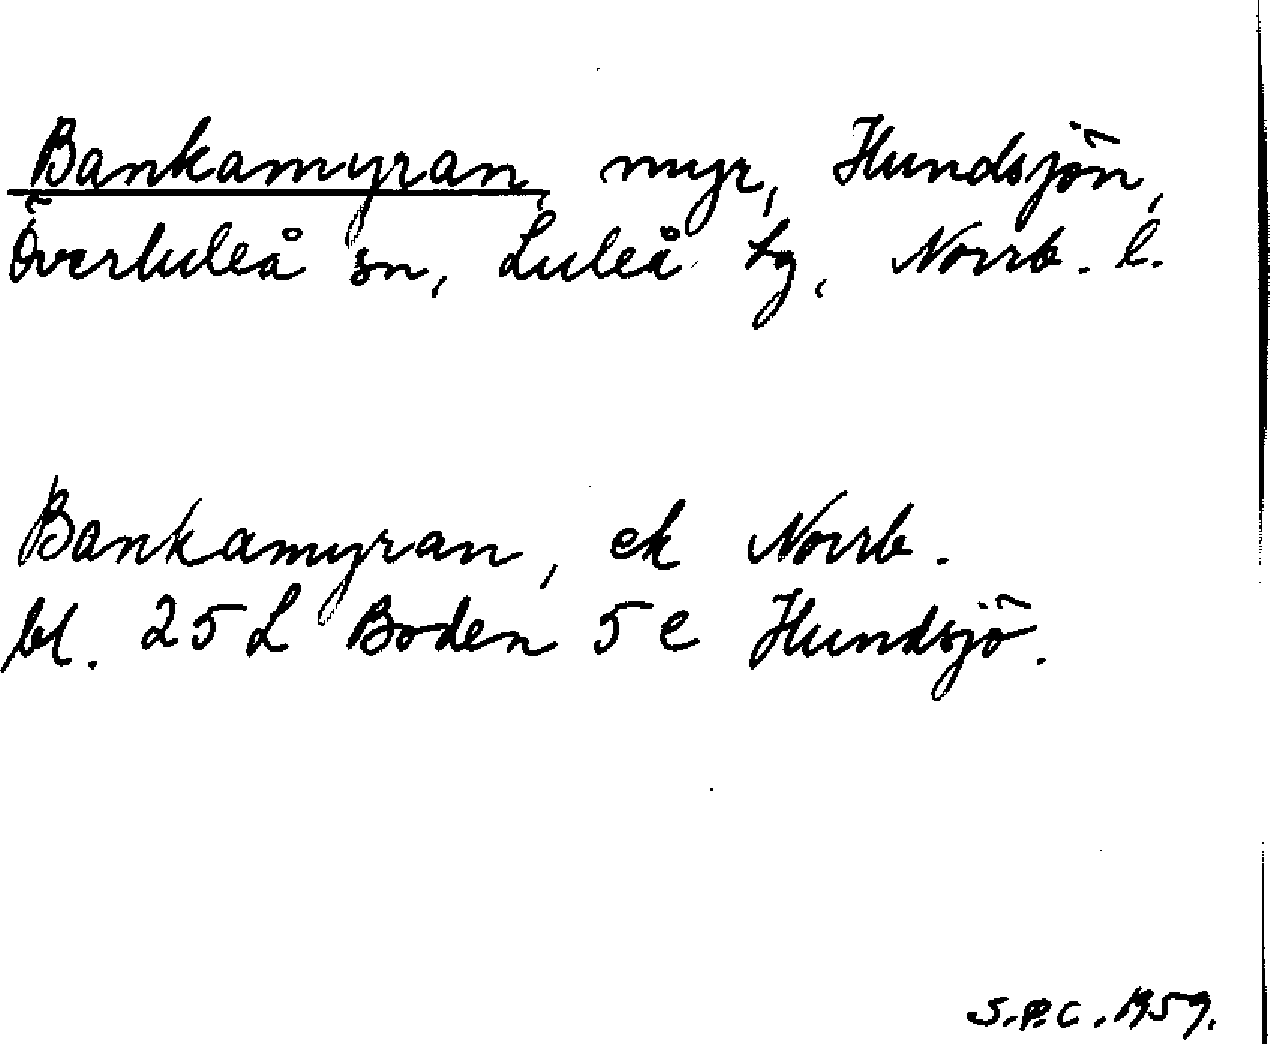 Bankamyran, myr, Hundsjön,
Överluleå sn, Luleå tg, Norrb. l.
Bankamyran, ek Norrb.
bl. 25 L Boden 5 e Hundsjö.
S.P.C. 1959.